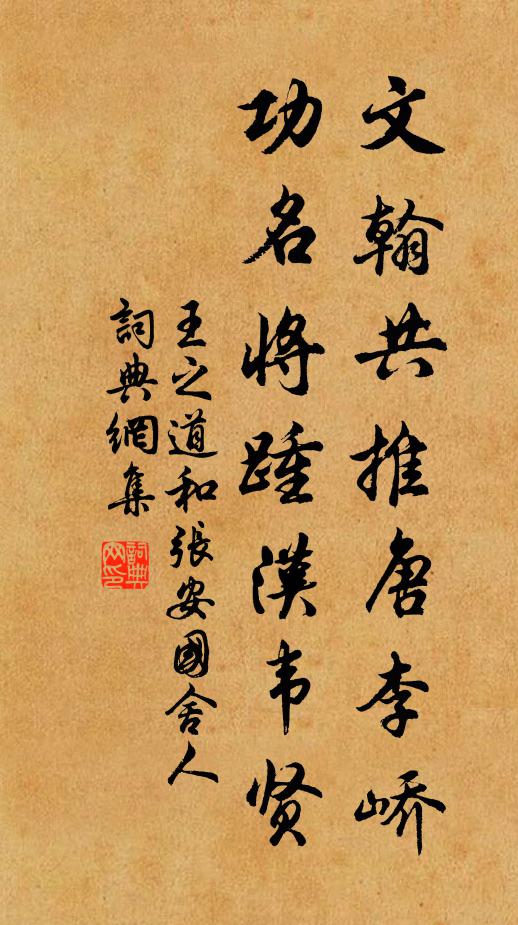 文翰共推唐李峤
功名将踵漢韦贤
王之道和張安國舍人
詞典網集
詞典网印